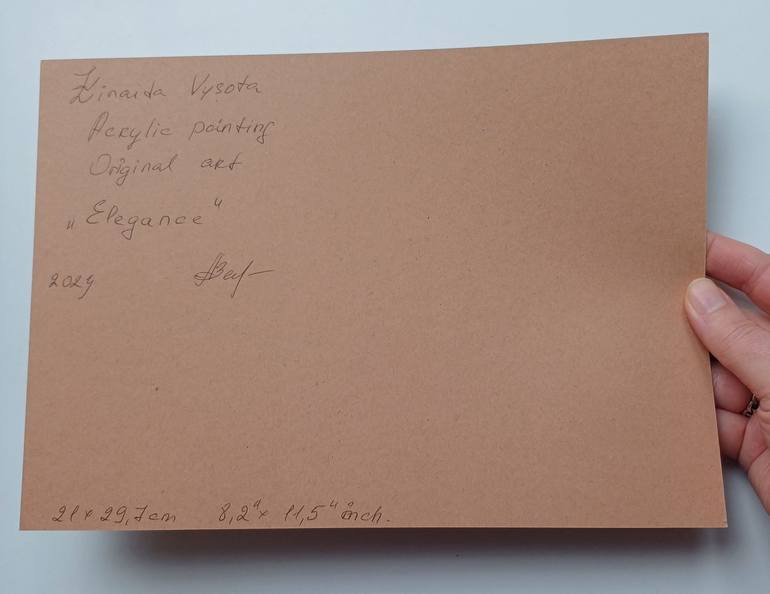 Zinaida Vysota
Acrylic painting
Original art
„Elegance“
2024
21 x 29,7 cm 8,2" x 11,5" inch.